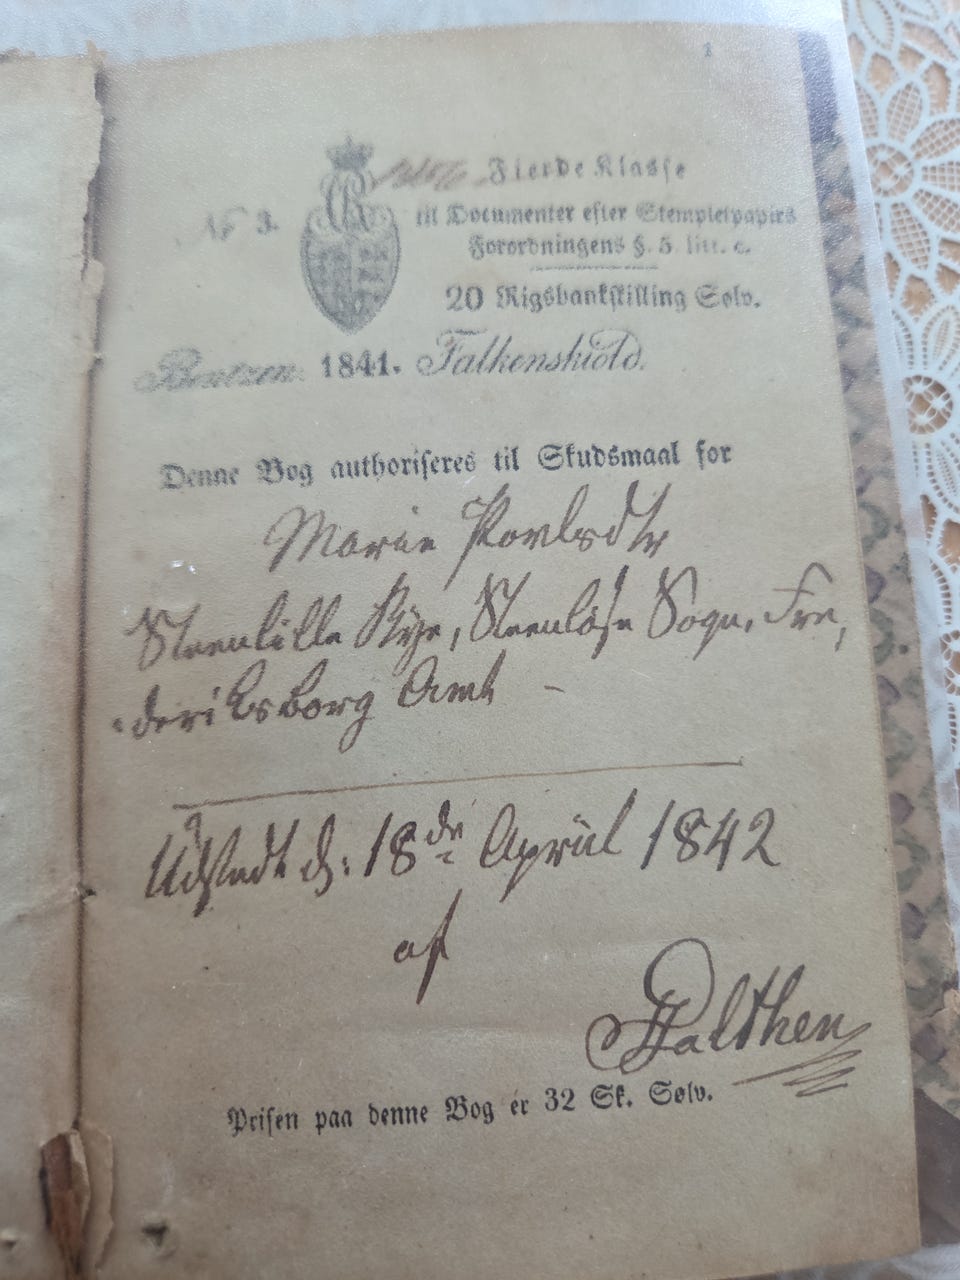 1
Fierde Klasse
№ 3.
til Documenter efter Stempletpapirs
Forordningens §. 5 litt. c.
20 Rigsbankskilling Sølv.
Bentzen. 1841. Falkenskiold.
Denne Bog authoriseres til Skudsmaal for
Marie Povlsdtr
Steenlille Bÿe, Steenløse Sogn, Fre,
deriksborg Amt -
Udstedt d: 18de April 1842
af
Palthen
Prisen paa denne Bog er 32 Sk. Sølv.